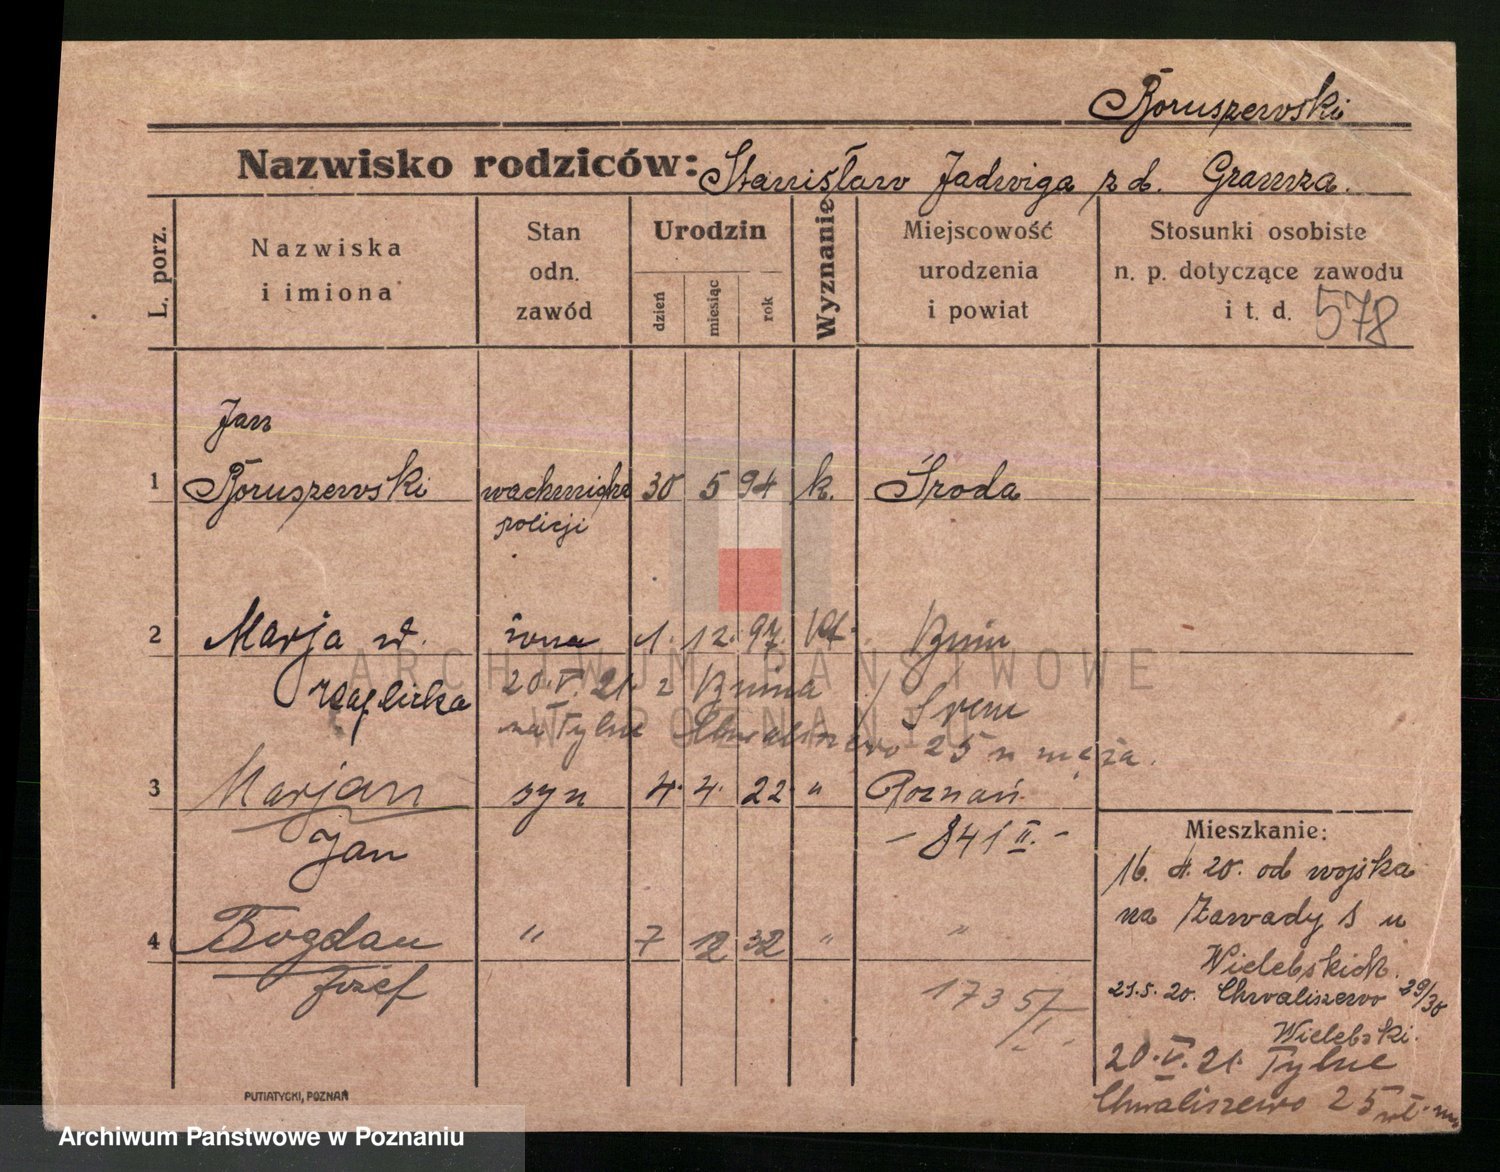 Boruszewski
Nazwisko rodziców: Stanisław Jadwiga z d. Gramza.
L. porz.
Nazwiska
i imiona
Stan
odn.
zawód
Urodzin
dzień
miesiąc
rok
Wyznanie
Miejscowość
urodzenia
i powiat
Stosunki osobiste
n. p. dotyczące zawodu
i t. d. 578
Jan
1 Boruszewski wachmistrz 30 5 94 k. Środa
policji
2 Marja żona 1. 12. 97. Kat. Bnin
20.V.21. z Bnina Śrem
na Tylne Chwaliszewo 25 u męża.
3 Marjan syn 4. 4. 22 " Poznań
Jan - 841 II. -
4 Bogdan " 7 12 32 " "
Józef 1735/II
Mieszkanie:
16. 4. 20. od wojska
na Zawady 5 u
Wielebskich.
21.5.20. Chwaliszewo 29/30
Wielebski.
20.V.21. Tylne
Chwaliszewo 25
PUTIATYCKI, POZNAŃ
ARCHIWUM PAŃSTWOWE
W POZNANIU
Archiwum Państwowe w Poznaniu